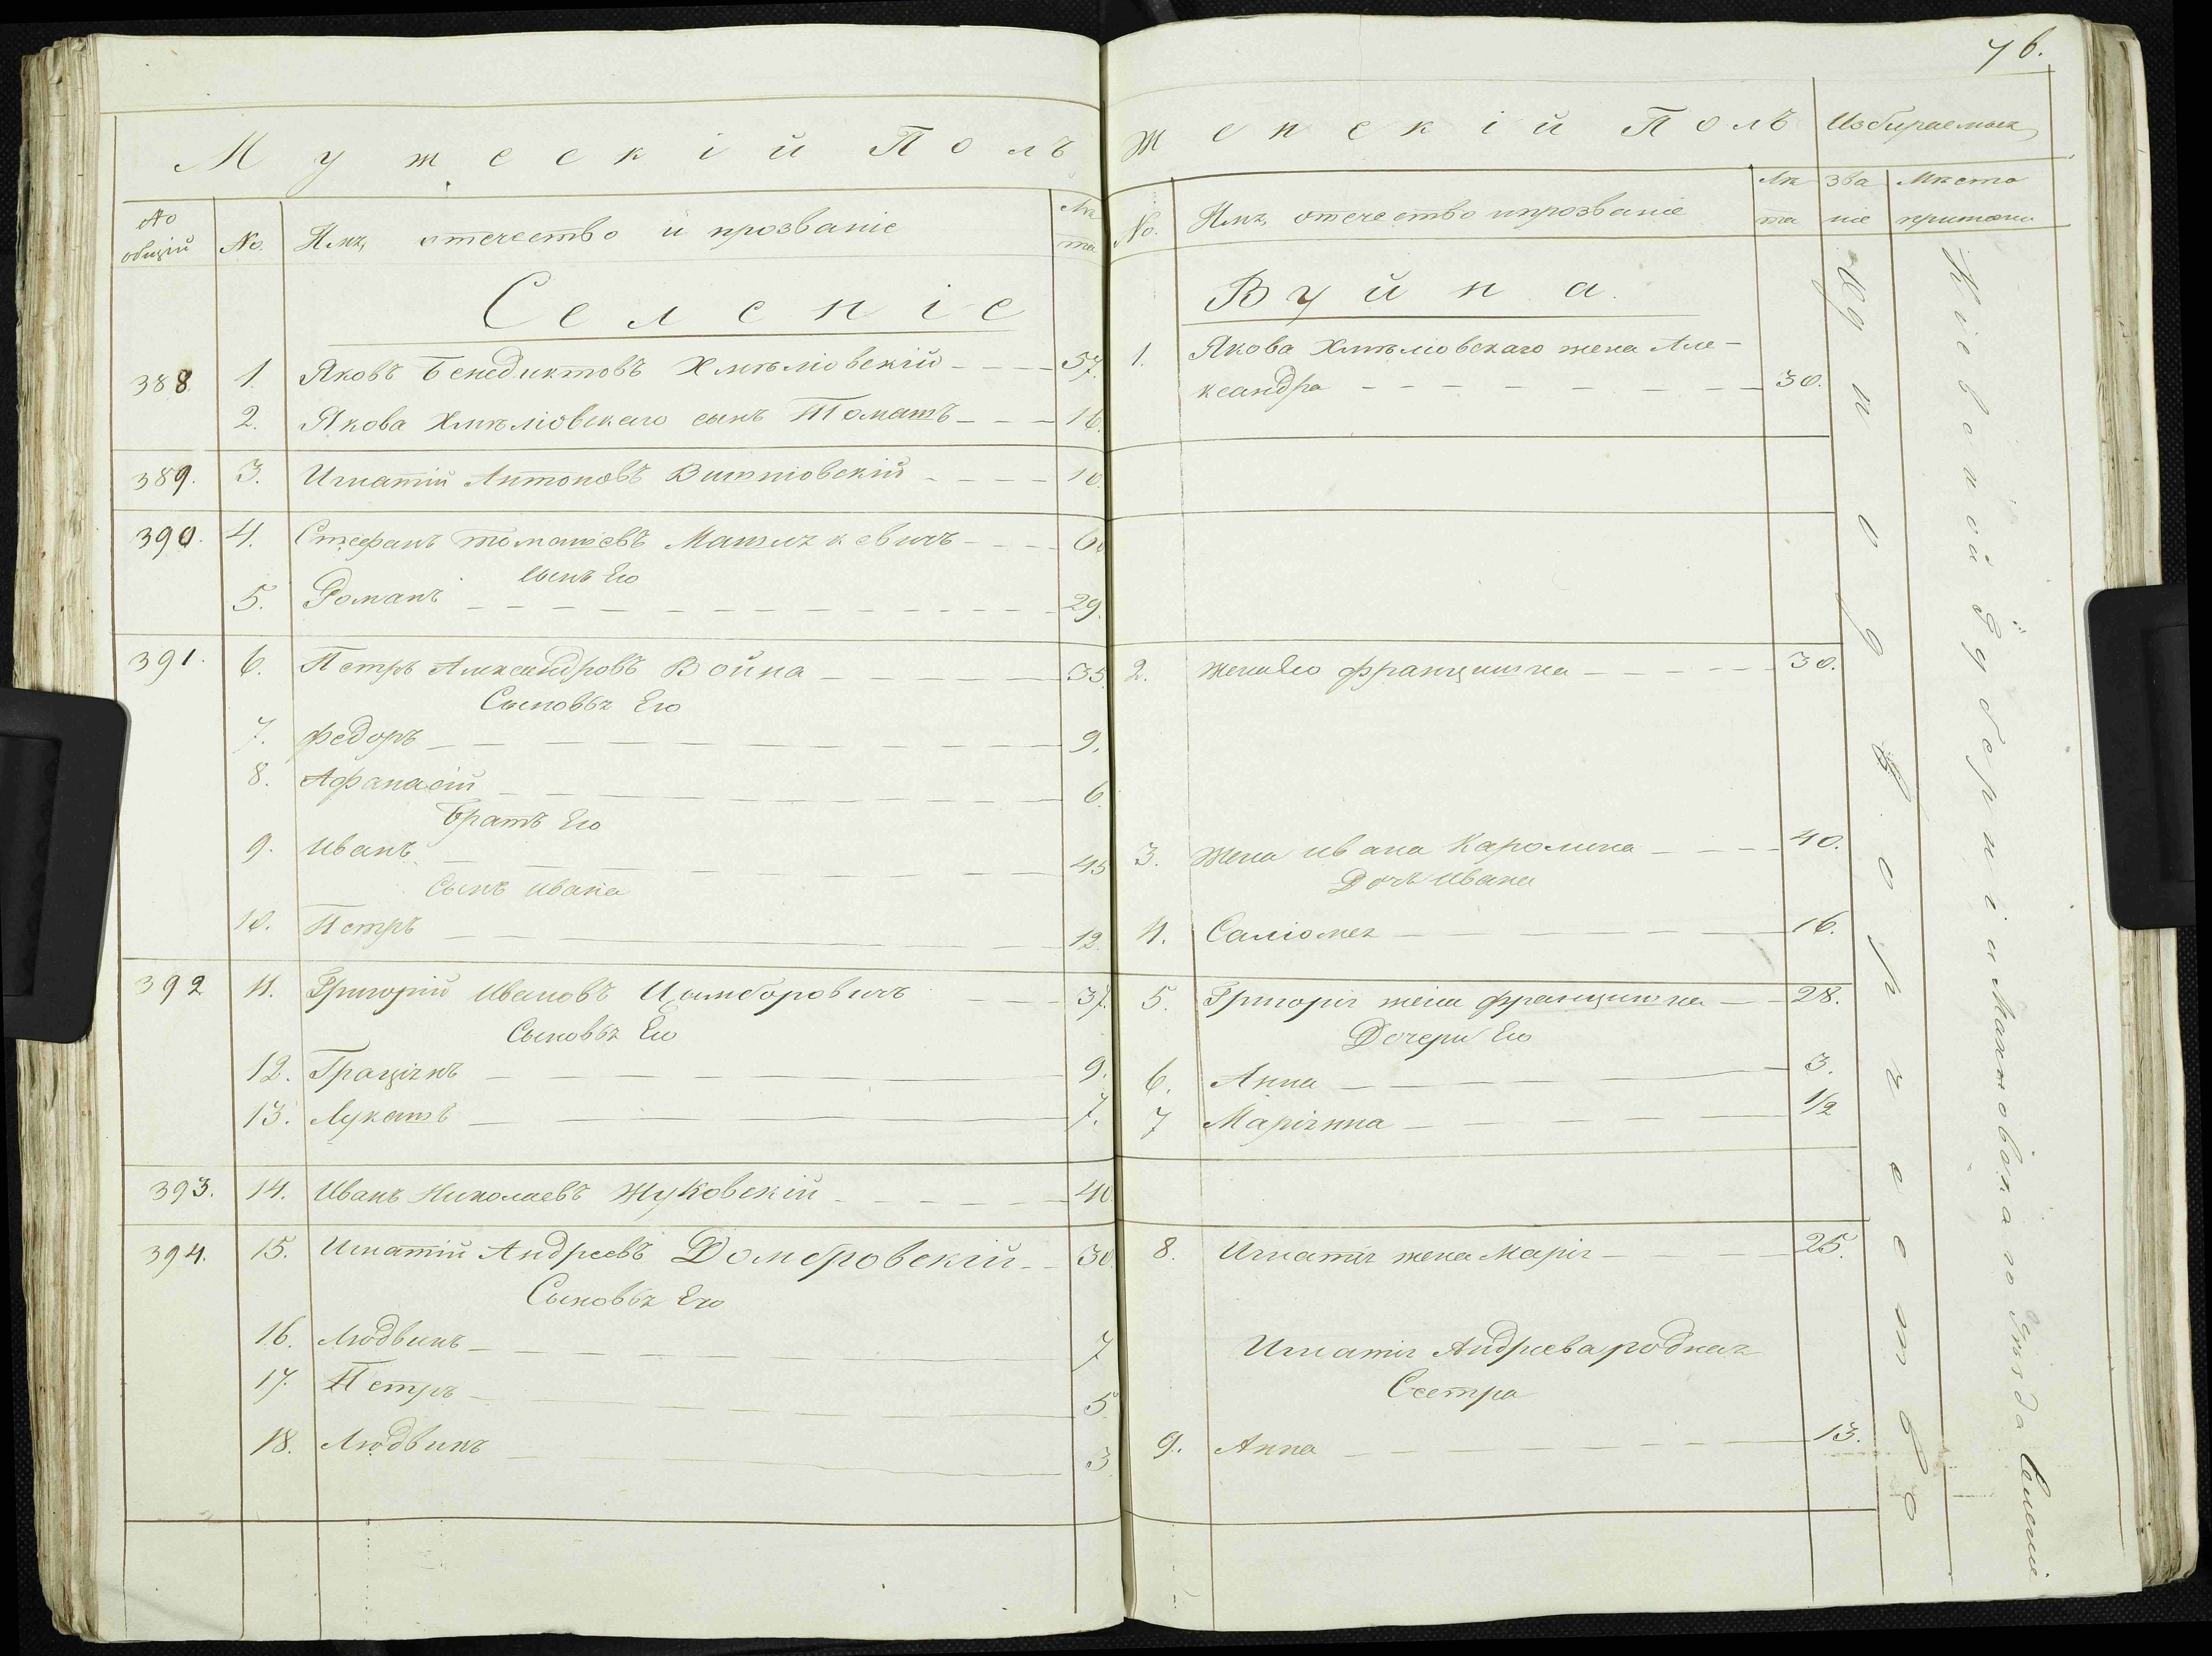 76.
Мужескій Полъ
No общій
No.
Имя, отечество и прозваніе
Лѣта
Селеніе
388. 1. Яковъ Бенедиктовъ Хмѣлювскій 57.
2. Якова Хмѣлювскаго сынъ Томашъ 16.
389. 3. Игнатій Антоновъ Вишніовскій 10.
390. 4. Стефанъ Томашевъ Матушкевичъ 60
Сынъ Его
5. Романъ 29.
391. 6. Петръ Александровъ Война 35.
Сыновья Его
7. Федоръ 9.
8. Афанасій 6.
Братъ Его
9. Иванъ 45
Сынъ Ивана
10. Петръ 12.
392 11. Григорій Ивановъ Цимборовичъ 37.
Сыновья Его
12. Граціянъ 9.
13. Лукашъ 7.
393. 14. Иванъ Николаевъ Жуковскій 40.
394. 15. Игнатій Андреевъ Домбровскій 30.
Сыновья Его
16. Людвикъ 7
17. Петръ 5
18. Людвикъ 3.
Женскій Полъ
Избираемыя
No.
Имя, отечество и прозваніе
Лѣта
Званіе
Мѣсто
Вуйна.
1. Якова Хмѣлювскаго жена Але-
ксандра 30.
2. Жена Его Францишка 30.
3. Жена Ивана Каролина 40.
Дочь Ивана
4. Саліомея 16.
5. Григорія жена Францишка 28.
Дочери Его
6. Анна 3.
7 Маріянна 1/2
8. Игнатія жена Марія 25.
Игнатія Андреева родная
Сестра
9. Анна 13.
Однодворческое
Кіевской Губерніи Махновскаго Уѣзда Селеніе